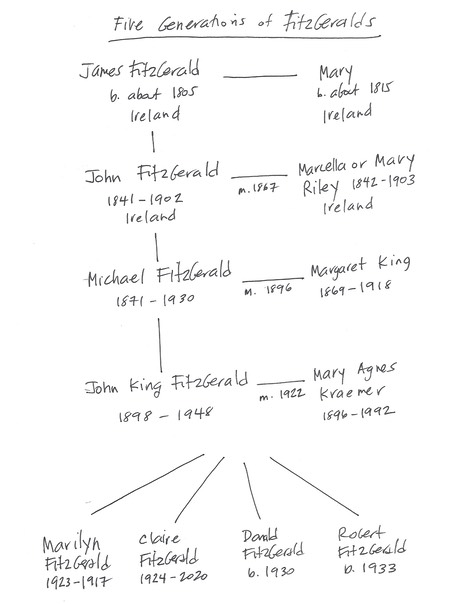 Five Generations of FitzGeralds
James FitzGerald
b. about 1805
Ireland
Mary
b. about 1815
Ireland
John FitzGerald
1841-1902
Ireland
m. 1867
Marcella or Mary
Riley 1842-1903
Ireland
Michael FitzGerald
1871-1930
m. 1896
Margaret King
1869-1918
John King FitzGerald
1898-1948
m. 1922
Mary Agnes
Kraemer
1896-1992
Marilyn
FitzGerald
1923-1917
Claire
FitzGerald
1924-2020
Donald
FitzGerald
b. 1930
Robert
FitzGerald
b. 1933